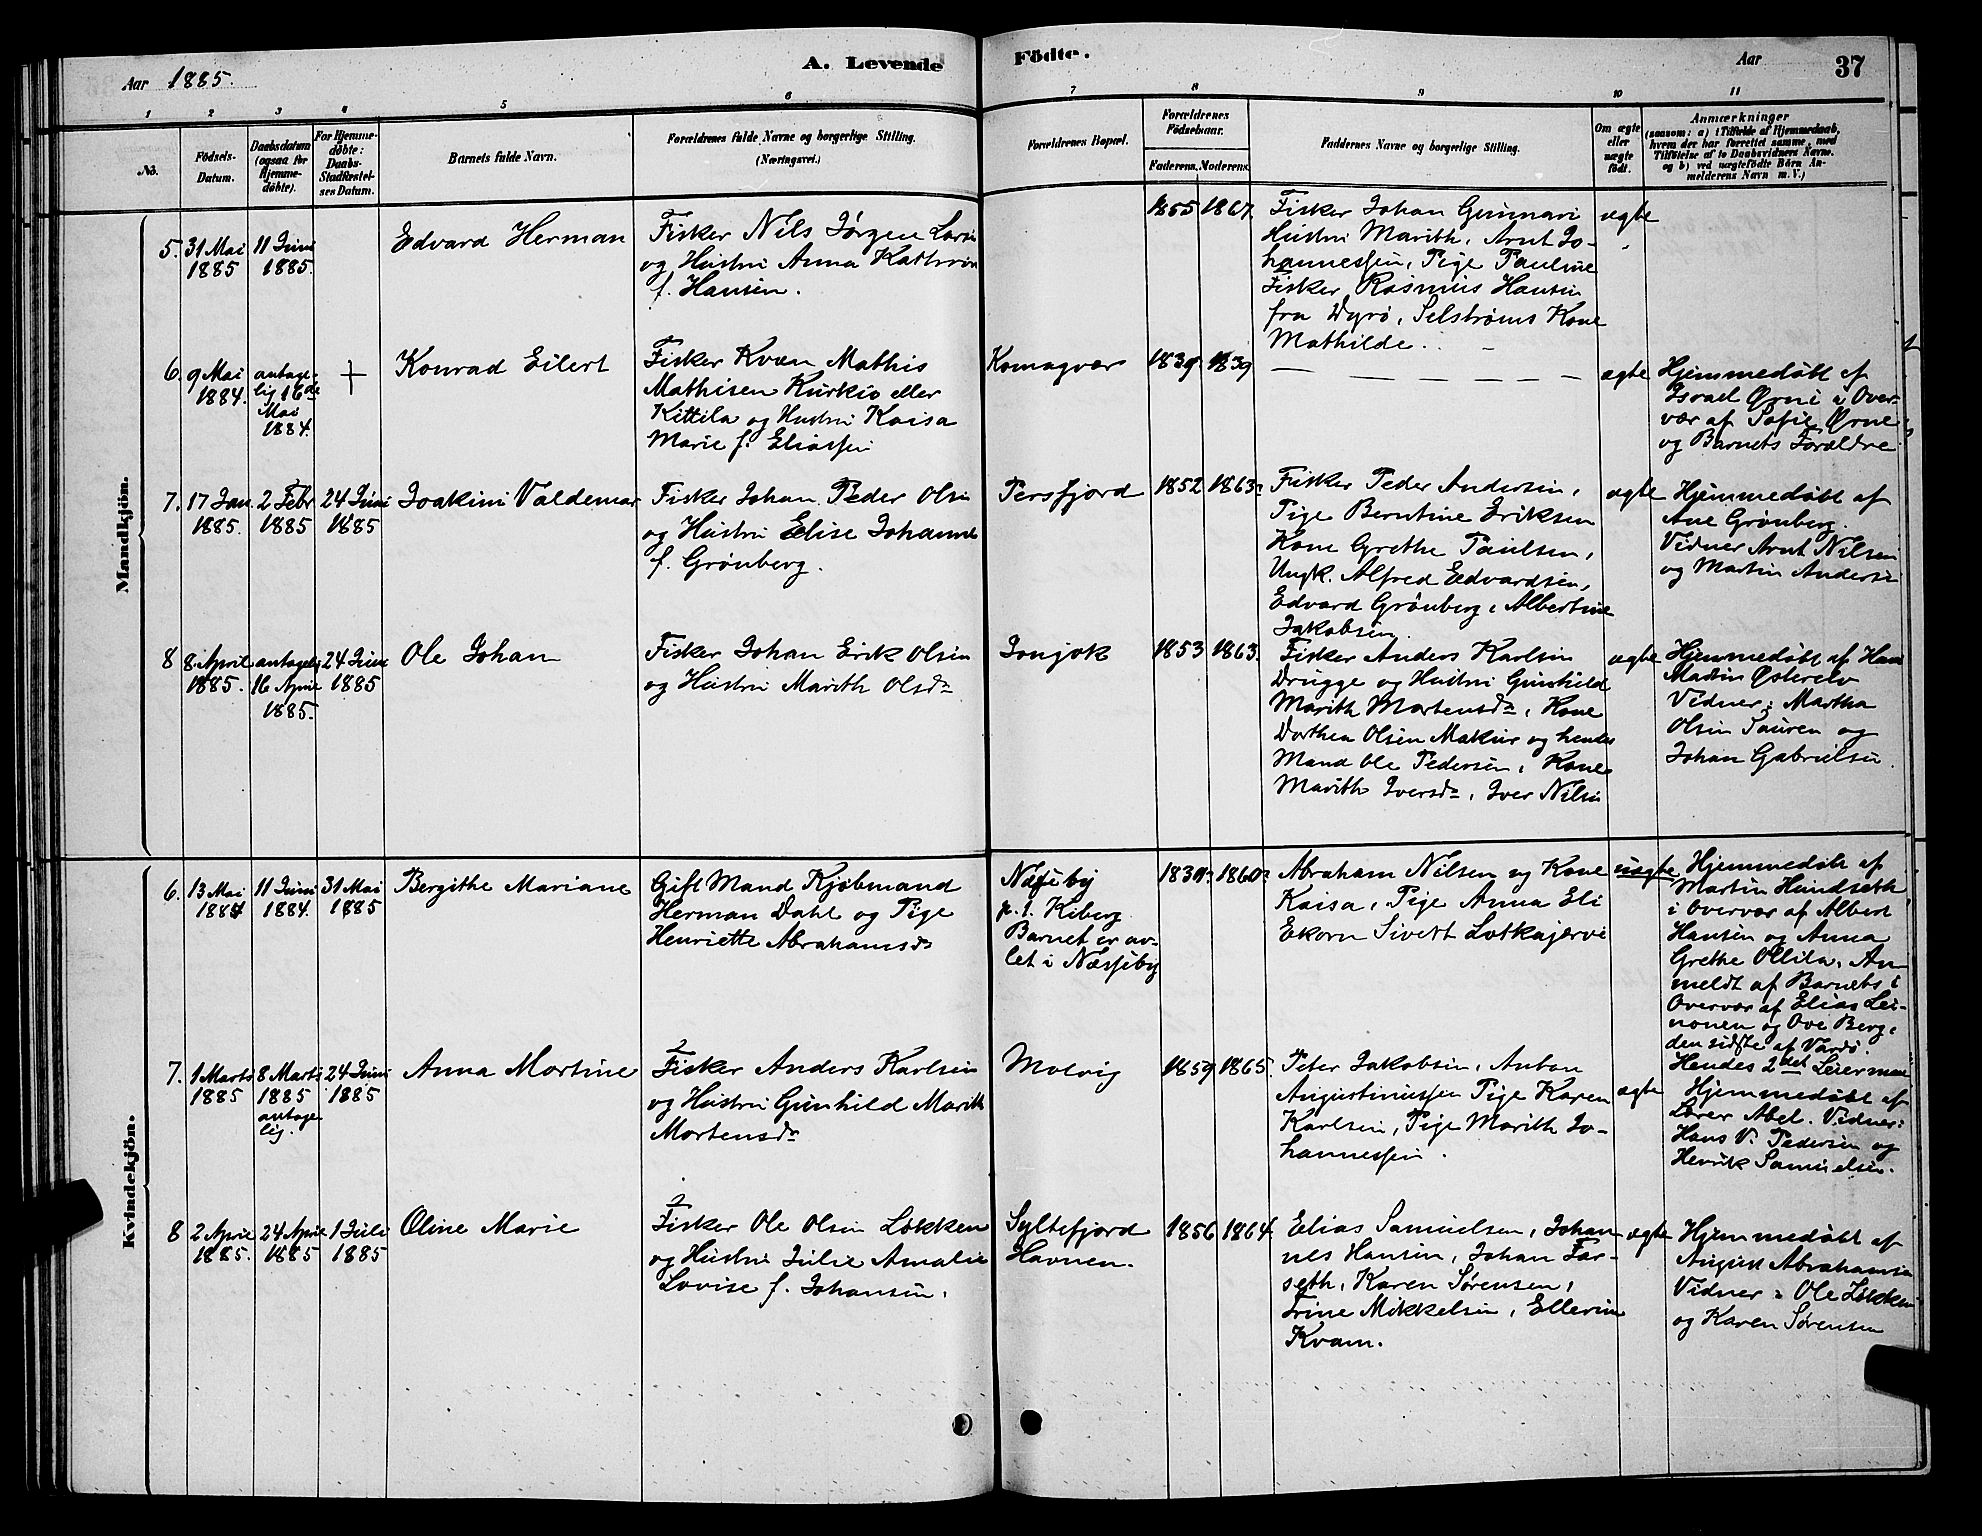 Aar 1885.
A. Levende
Födte.
Aar
37
1 2 3 4 5 6 7 8 9 10 11
No.
Födsels-
Datum.
Daabsdatum
(ogsaa for
Hjemme-
döbte).
For Hjemme-
döbte:
Daabs-
Stadfæstel-
ses Datum.
Barnets fulde Navn.
Forældrenes fulde Navne og borgerlige Stilling.
(Næringsvei.)
Forældrenes Bopæl.
Forældrenes
Födselsaar.
Faderens. Moderens.
Faddernes Navne og borgerlige Stilling.
Om ægte
eller
uægte
födt.
Anmærkninger
(saasom: a) i Tilfælde af Hjemmedaab,
hvem der har forrettet samme, med
Tilföielse af to Daabsvidners Navne.
og b) ved uægtefödte Börn An-
melderens Navn m. V.)
Mandkjön.
5.
31 Mai
1885
11 Juni
1885.
Edvard Herman
Fisker Nils Jørgen
og Hustru Anna Kathrine
f. Hansen.
1855 1867.
Fisker Johan Gunnari
Hustru Marith, Arnt Jo-
hannessen, Pige Pauline
Fisker Rasmus Hansen
fra Dyrö, Selströms Kone
Mathilde.
ægte
6.
9 Mai
1884.
antage-
lig 16de
Mai
1884.
+
Konrad Eilert
Fisker Kvæn Mathis
Mathisen Kurkio eller
Kittila og Hustru Kaisa
Marie f. Eliassen
Komagvær
1839. 1839
— — — — — —
ægte
Hjemmedøbt af
Israel Ørni i Over-
vær af Sofie Ørne
og Barnets Forældre
7.
17 Jan.
1885.
2 Febr
1885
24 Juni
1885
Joakim Valdemar
Fisker Johan Peder Olsen
og Hustru Elise Johanne
f. Grönberg.
Persfjord
1852 1863.
Fisker Peder Andersen,
Pige Berntine Eriksen
Kone Grethe Paulsen,
Ungk. Alfred Edvardsen,
Edvard Grönberg, Albertine
Jakobsen
ægte
Hjemmedøbt af
Ane Grönberg.
Vidner Arnt Nilsen
og Martin Andersen
8
8 April
1885.
antagelig
16 April
1885.
24 Juni
1885
Ole Johan
Fisker Johan Erik Olsen
og Hustru Marith Olsdr
1853 1863.
Fisker Anders Karlsen
Drugge og Hustru Gunhild
Marith Mortensdr, Kone
Dorthea Olsen Makur og hendes
Mand Ole Pedersen, Kone
Marith Iversdr, Iver Nilsen
ægte
Hjemmedøbt af Hans
Martin Østerelv
Vidner: Martha
Olsen Sauren og
Johan Gabrielsen.
Kvindekjön.
6.
13 Mai
1884
11 Juni
1884.
31 Mai
1885
Bergithe Mariane
Gift Mand Kjøbmand
Herman Dahl og Pige
Henriette Abrahamsdr
Næsseby
p. t. Kiberg
Barnet er av-
let i Næsseby
1839. 1860.
Abraham Nilsen og Kone
Kaisa, Pige Anna Eli
Ekorn Sivert Lotkajervi
uægte
Hjemmedøbt af
Martin Hundseth
i Overvær af Albert
Hansen og Anna
Grethe Ollila. An-
meldt af Barnets i
Overvær af Elias Lei-
nonen og Ove Berg,
den sidste af Vardö.
Hendes 2det Leiermaal
7.
1 Marts
1885
8 Marts
1885
antage-
lig.
24 Juni
1885
Anna Martine
Fisker Anders Karlsen
og Hustru Gunhild Marith
Mortensdr
Molvig
1859 1865.
Peter Jakobsen, Anton
Augustinussen Pige Karen
Karlsen, Pige Marith Jo-
hannessen.
ægte
Hjemmedøbt af
Lærer Abel. Vidner:
Hans V. Pedersen og
Henrik Samuelsen.
8
2 April
1885.
24 April
1885
1 Juli
1885
Oline Marie
Fisker Ole Olsen Løkken
og Hustru Julie Amalie
Lovise f. Johansen.
Syltefjord
Havnen.
1856 1864.
Elias Samuelsen, Johan-
nes Hansen, Johan For-
seth, Karen Sørensen,
Trine Mikkelsen, Ellerine
Kvam.
ægte
Hjemmedøbt af
August Abrahamsen
Vidner: Ole Løkken
og Karen Sørensen